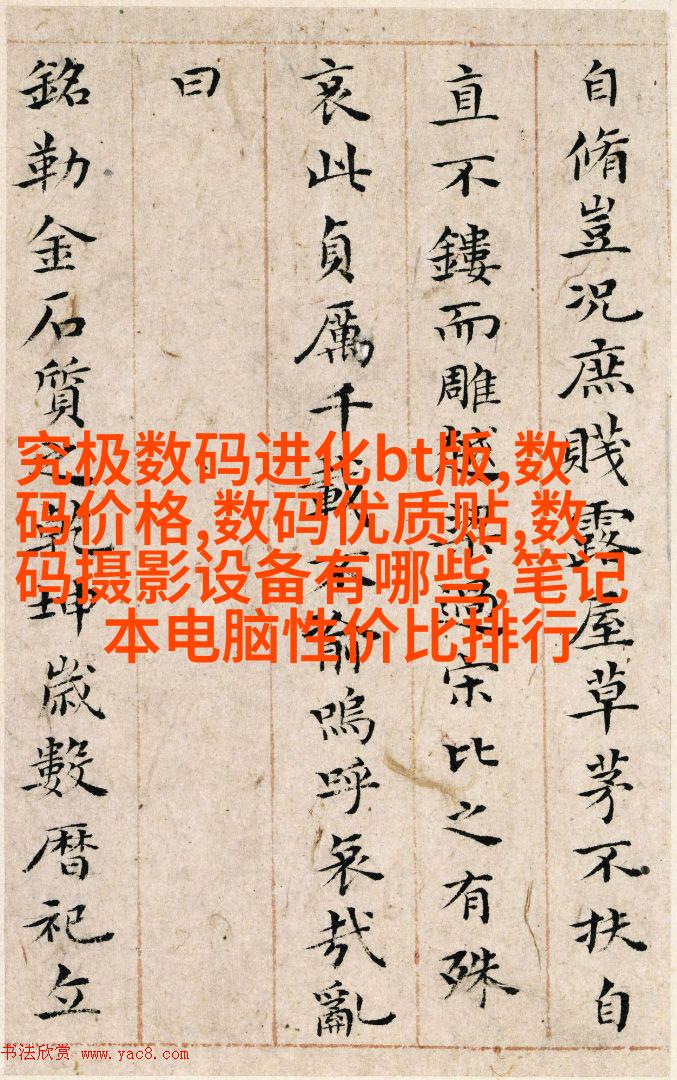 自脩豈況庶賤露屋草茅不扶自
直不鏤而雕宋比之有殊
哀此貞厲千載不渝嗚呼哀哉亂
曰
銘勒金石質之乾坤歲數曆祀立
究极数码进化bt版,数
码价格,数码优质贴,数
码摄影设备有哪些,笔记
本电脑性价比排行
书法欣赏 www.yac8.com